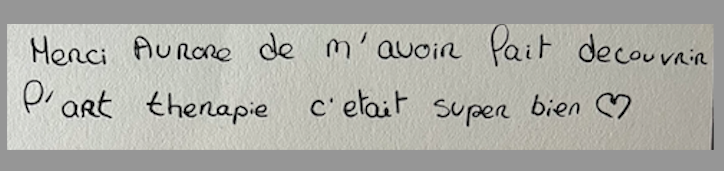 Merci Aurore de m'avoir fait decouvrir
l'art therapie c'etait super bien ♡